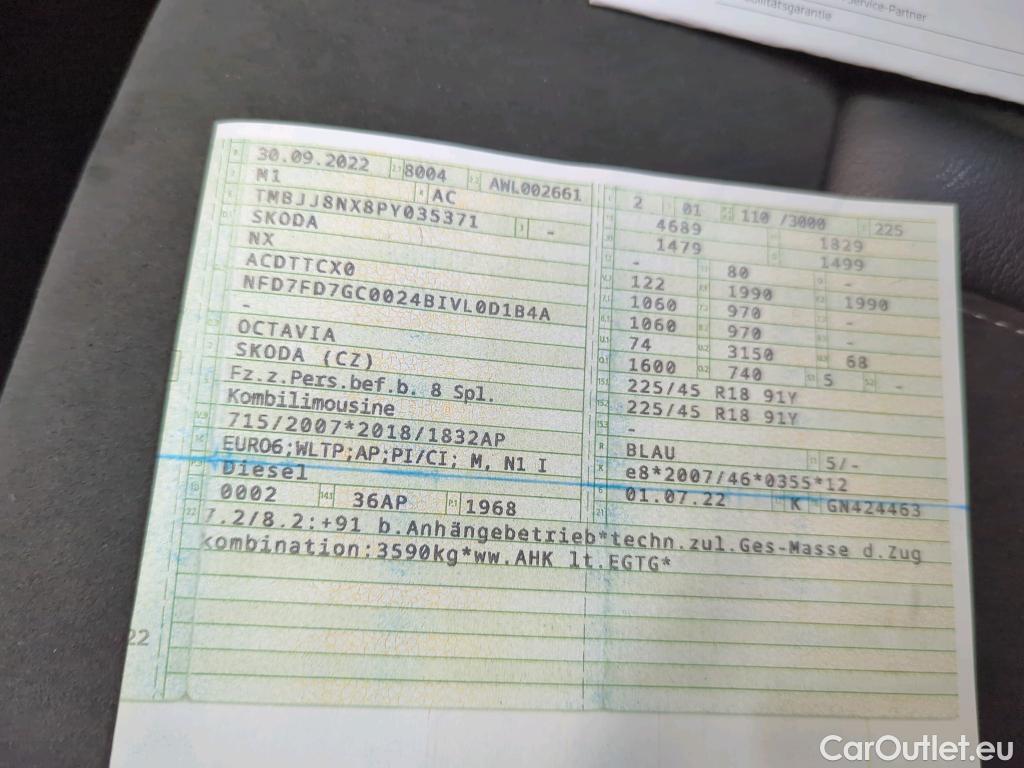 Service-Partner
bilitätsgarantie
30.09.2022 8004 AWL002661
M1 AC
TMBJJ8NX8PY035371 -
SKODA
NX
ACDTTCX0
NFD7FD7GC0024BIVL0D1B4A
-
OCTAVIA
SKODA (CZ)
Fz.z.Pers.bef.b. 8 Spl.
Kombilimousine
715/2007*2018/1832AP
EURO6;WLTP;AP;PI/CI; M, N1 I
Diesel
0002 14.1 36AP P.1 1968
2 01 110 /3000 225
4689 1829
1479 1499
- 80 -
122 1990 1990
1060 970 -
1060 970 -
74 3150 68
1600 740 5 -
225/45 R18 91Y
225/45 R18 91Y
-
BLAU 5/-
e8*2007/46*0355*12
01.07.22 K GN424463
22 7.2/8.2:+91 b.Anhängebetrieb*techn.zul.Ges-Masse d.Zug
kombination:3590kg*ww.AHK lt.EGTG*
22
CarOutlet.eu